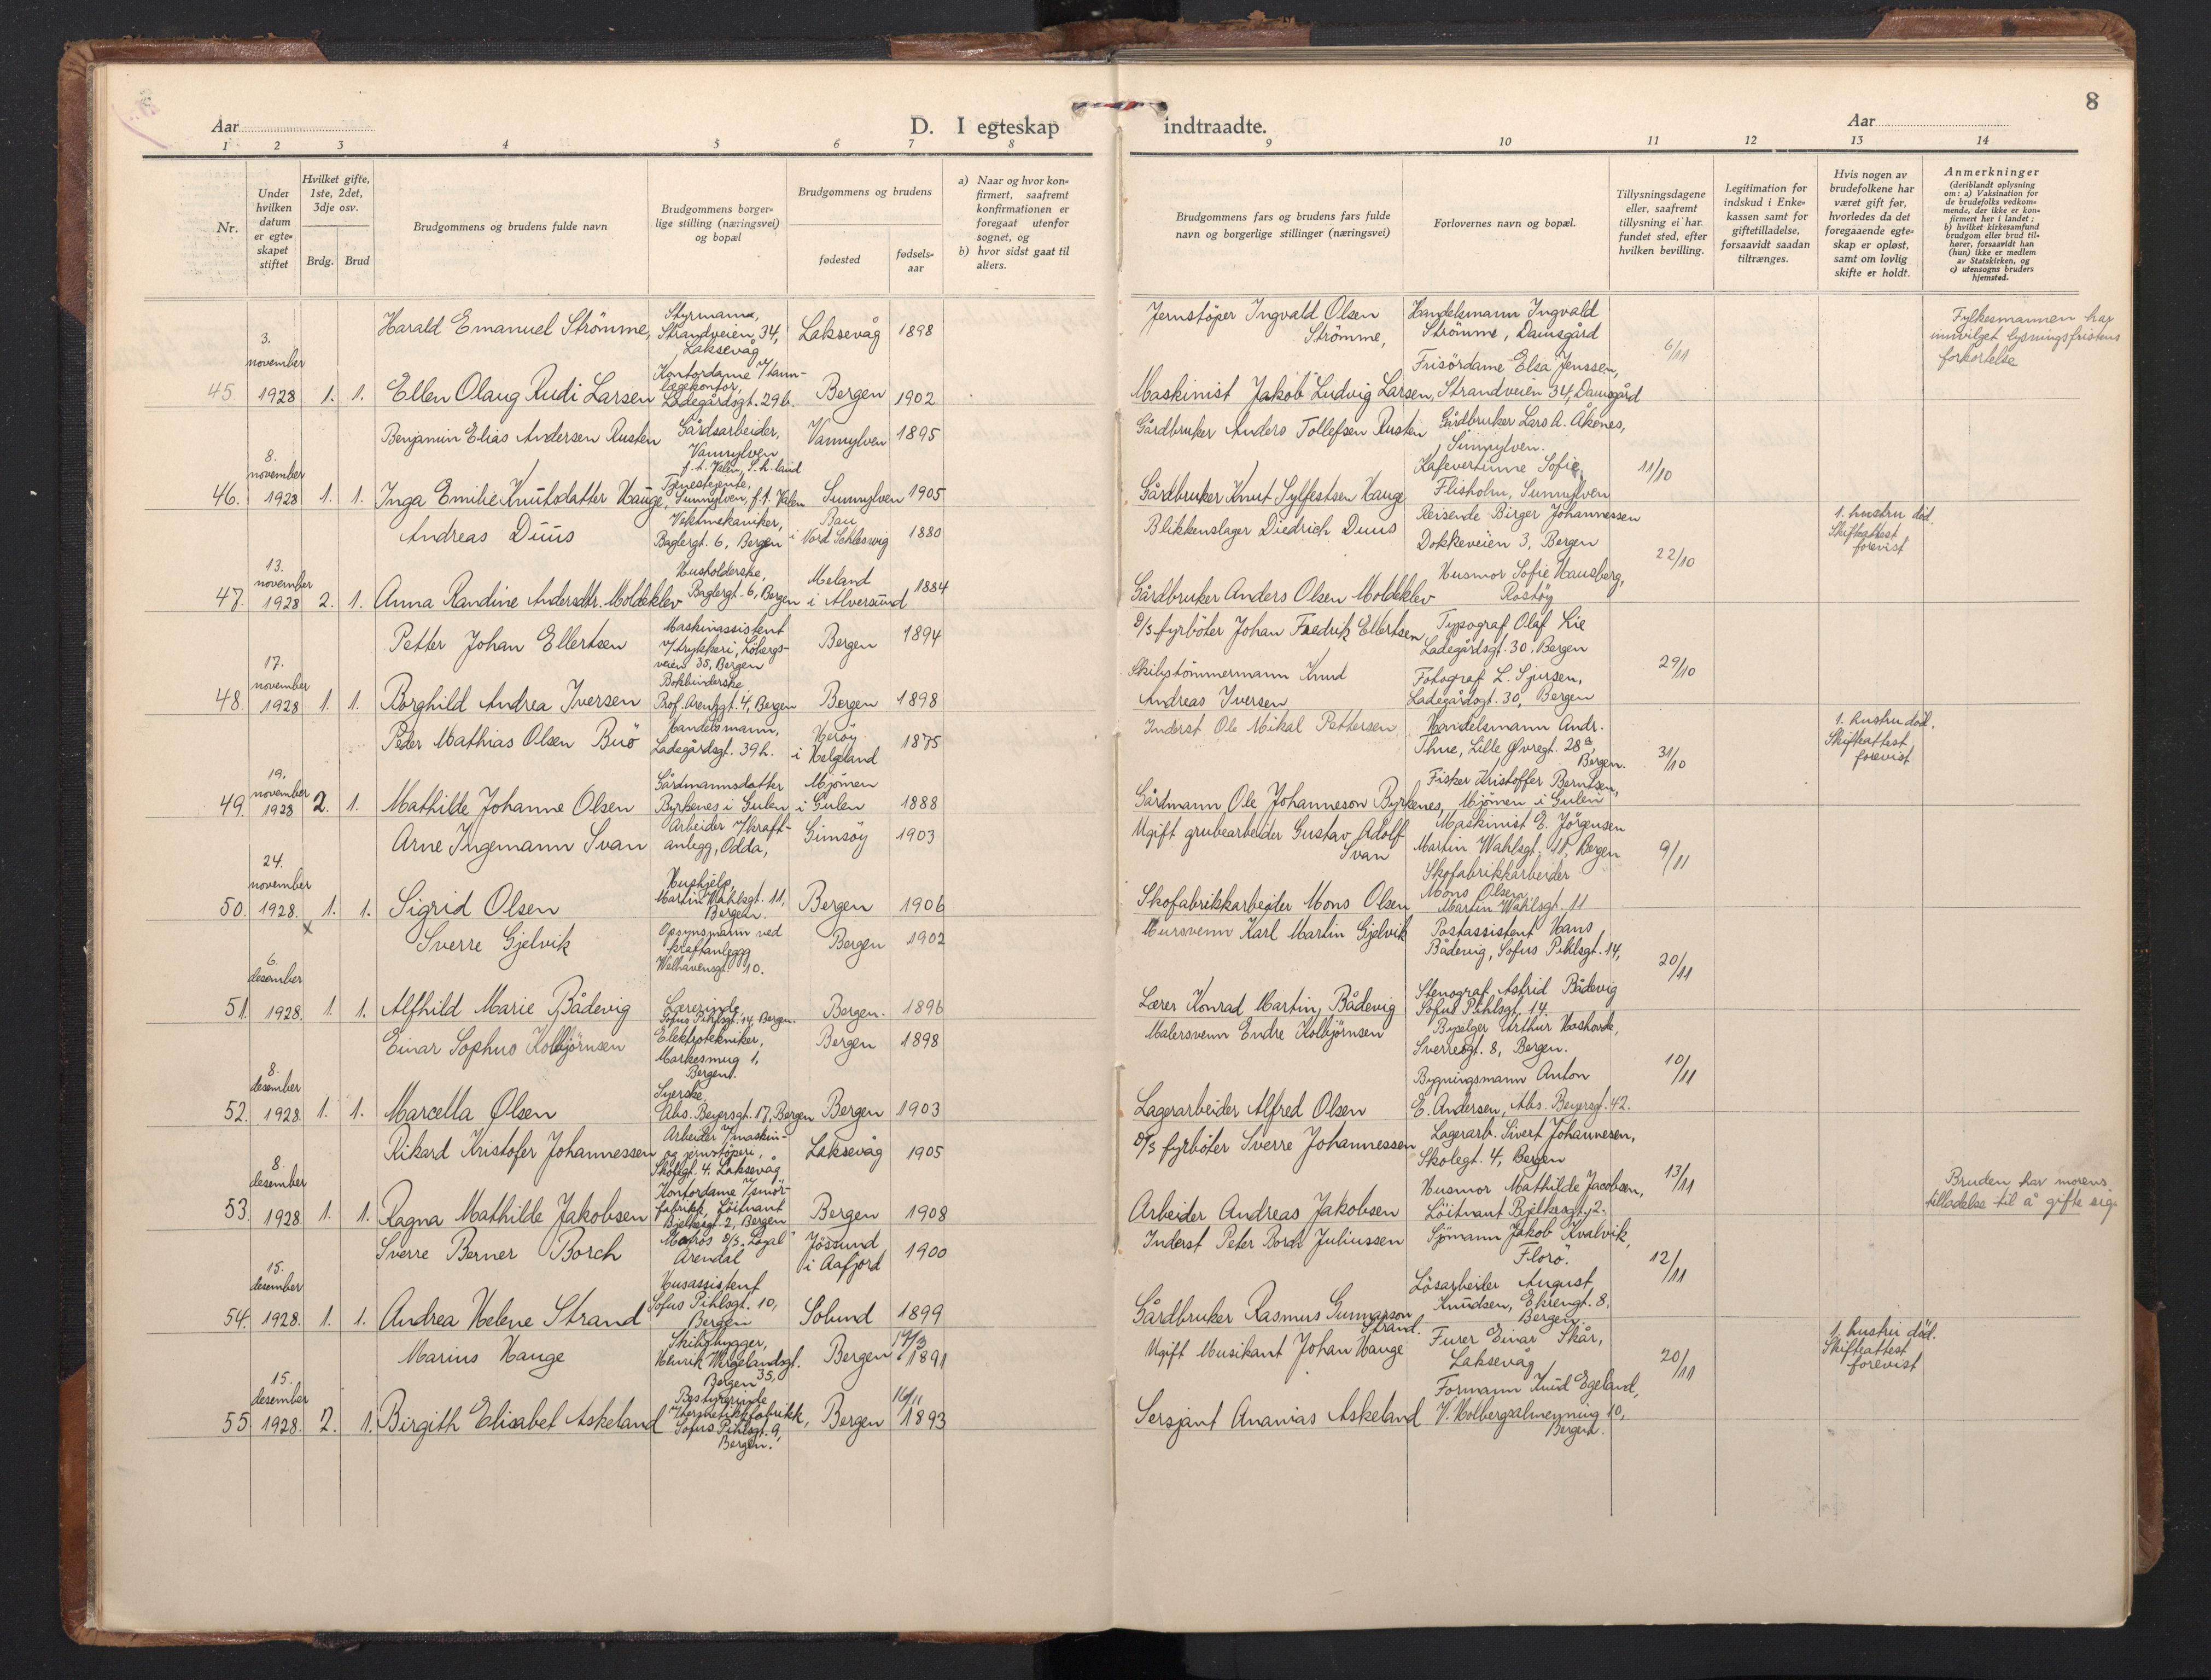 8
Aar
D. I egteskap
indtraadte.
Aar
1 2 3 4 5 6 7 8 9 10 11 12 13 14
Nr.
Under
hvilken
datum
er egte-
skapet
stiftet
Hvilket gifte,
1ste, 2det,
3dje osv.
Brdg.
Brud
Brudgommens og brudens fulde navn
Brudgommens borger-
lige stilling (næringsvei)
og bopæl
Brudgommens og brudens
fødested
fødsels-
aar
a) Naar og hvor kon-
firmert, saafremt
konfirmationen er
foregaat utenfor
sognet, og
b) hvor sidst gaat til
alters.
Brudgommens fars og brudens fars fulde
navn og borgerlige stillinger (næringsvei)
Forlovernes navn og bopæl.
Tillysningsdagene
eller, saafremt
tillysning ei har
fundet sted, efter
hvilken bevilling.
Legitimation for
indskud i Enke-
kassen samt for
giftetilladelse,
forsaavidt saadan
tiltrænges.
Hvis nogen av
brudefolkene har
været gift før,
hvorledes da det
foregaaende egte-
skap er opløst,
samt om lovlig
skifte er holdt.
Anmerkninger
(deriblandt oplysning
om: a) Vaksination for
de brudefolks vedkom-
mende, der ikke er kon-
firmert her i landet;
b) hvilket kirkesamfund
brudgom eller brud til-
hører, forsaavidt han
(hun) ikke er medlem
av Statskirken, og
c) utensogns bruders
hjemsted.
45
3.
november
1928
1. 1.
Harald Emanuel Strömme,
Styrmann,
Strandveien 34,
Laksevåg
Laksevåg
1898
Jernstöper Ingvald Olsen
Strömme,
Handelsmann Ingvald
Strömme, Damsgård
6/11
Fylkesmannen har
innvilget lysningsfristens
forkortelse
Ellen Olaug Rudi Larsen
Kontordame v/tann-
lægekontor,
Ladegårdsgt. 29b.
Bergen
1902
Maskinist Jakob Ludvig Larsen,
Frisördame Elsa Jenssen,
Strandveien 34, Damsgård
46.
8.
november
1928
1. 1.
Benjamin Elias Andersen Rusten
Gårdsarbeider,
Vannylven
f.t. Valen, S.h.land
Vannylven
1895
Gårdbruker Anders Tollefsen Rusten
Gårdbruker Lars A. Åkenes,
Sunnylven.
11/10
Inga Emilie Knutsdatter Hauge,
Tjenestejente,
Sunnylven, f.t. Valen
Sunnylven
1905
Gårdbruker Knut Sylfestsen Hauge
Kafevertinne Sofie
Flisholm, Sunnylven
47.
13.
november
1928
2. 1.
Andreas Duus
Vektmekaniker,
Baglergt. 6, Bergen
Bau
i Nord Schleswig
1880
Blikkenslager Diedrich Duus
Reisende Birger Johannessen
Dokkeveien 3, Bergen
22/10
1. hustru död.
Skifteattest
forevist
Anna Randine Andersdtr. Moldeklev
Husholderske,
Baglergt. 6, Bergen
Meland
i Alversund
1884
Gårdbruker Anders Olsen Moldeklev
Husmor Sofie Hausberg,
Rostöy
48.
17.
november
1928
1. 1.
Petter Johan Ellertsen
Maskinassistent
v/trykkeri,
veien 35, Bergen
Bergen
1894
D/S fyrböter Johan Fredrik Ellertsen
Typograf Olaf Lie
Ladegårdsgt. 30, Bergen
29/10
Borghild Andrea Iversen
Bokbinderske
Prof. Arentzgt. 4, Bergen
Bergen
1898
Skibstömmermann Knud
Andreas Iversen
Fotograf L. Sjursen,
Ladegårdsgt. 30, Bergen
49.
19.
november
1928
2. 1.
Peder Mathias Olsen Buö
Handelsmann,
Ladegårdsgt. 39 b.
Heröy
i Helgeland
1875
Inderst Ole Mikal Pettersen
Handelsmann Andr.
Thue, Lille Øvregt. 28a,
Bergen.
31/10
1. hustru död.
Skifteattest
forevist
Mathilde Johanne Olsen
Gårdmannsdatter
Byrkenes i Gulen
Mjömen
i Gulen
1888
Gårdmann Ole Johanneson Byrkenes,
Fisker Kristoffer Berntsen,
Mjömen i Gulen
50.
24.
november
1928.
1. 1.
Arne Ingemann Svan
Arbeider v/kraft-
anlegg, Odda,
Gimsöy
1903
Ugift grubearbeider Gustav Adolf
Svan
Maskinist E. Jörgensen
Martin Wahlsgt. 11, Bergen
9/11
Sigrid Olsen
Hushjelp,
Martin Wahlsgt. 11,
Bergen.
Bergen
1906
Skofabrikkarbeider Mons Olsen
Skofabrikkarbeider
Mons Olsen
Martin Wahlsgt. 11
51.
x
6.
desember
1928.
1. 1.
Sverre Gjelvik
Opsynsmann ved
kraftanlegg
Welhavensgt. 10.
Bergen
1902
Mursvenn Karl Martin Gjelvik
Postassistent Hans
Bådevig, Sofus Pihlsgt. 14,
20/11
Alfhild Marie Bådevig
Lærerinde,
Sofus Pihlsgt. 14, Bergen.
Bergen.
1896
Lærer Konrad Martin Bådevig
Stenograf Astrid Bådevig
Sofus Pihlsgt. 14.
52.
8.
desember
1928.
1. 1.
Einar Sophus Kolbjörnsen
Elektrotekniker,
Markesmug 1,
Bergen.
Bergen
1898
Malersvenn Endre Kolbjörnsen
Byselger Arthur
Sverresgt. 8, Bergen.
10/11
Marcella Olsen
Syerske,
Abs. Beyersgt. 17, Bergen
Bergen
1903
Lagerarbeider Alfred Olsen
Bygningsmann Anton
E. Andersen, Abs. Beyersgt. 42.
53.
8.
desember
1928.
1. 1.
Rikard Kristofer Johannessen
Arbeider v/maskin-
og jernstöperi,
Skolegt. 4. Laksevåg
Laksevåg
1905
D/S fyrböter Sverre Johannessen
Lagerarb. Sivert Johannesen,
Skolegt. 4, Bergen
13/11
Ragna Mathilde Jakobsen
Kontordame v/smör-
fabrikk, Löitnant
Bjelkesgt. 2, Bergen
Bergen
1908
Arbeider Andreas Jakobsen
Husmor Mathilde Jacobsen,
Löitnant Bjelkesgt. 2.
Bruden har morens
tilladelse til å gifte sig.
54.
15.
desember
1928.
1. 1.
Sverre Berner Borch
Matros D/S "Loyal"
Arendal
Jössund
i Aafjord
1900
Inderst Peter Borch Juliussen
Sjömann Jakob Kvalvik,
Florö.
12/11
Andrea Helene Strand
Husassistent
Sofus Pihlsgt. 10,
Bergen
Solund
1899
Gårdbruker Rasmus Gunnarson
Strand.
Lösarbeider August
Knudsen, Ekrengt. 8,
Bergen.
55.
15.
desember
1928.
2. 1.
Marius Hauge
Skibsbygger,
Henrik Wergelandsgt.
35,
Bergen
Bergen
19/3
1891
Ugift Musikant Johan Hauge
Furer Einar Skår,
Laksevåg
20/11
1. hustru död.
Skifteattest
forevist
Birgith Elisabet Askeland
Bestyrerinde
v/hermetikkfabrikk,
Sofus Pihlsgt. 9,
Bergen.
Bergen
16/11
1893
Sersjant Ananias Askeland
Formann Knud Egeland,
V. Holbergsalmenning 10,
Bergen.